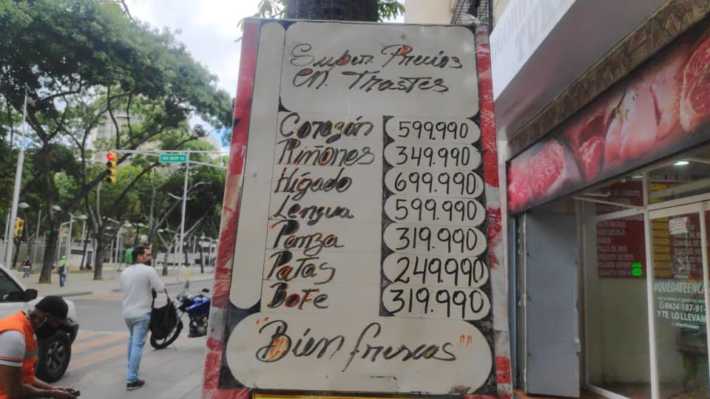 Super Precios
en Trastes
Corazón 599.990
Riñones 349.990
Hígado 699.990
Lengua 599.990
Panza 319.990
Patas 249.990
Bofe 319.990
"Bien frescas"
#QUEDATEENCA
Y TE LO LLEVAM